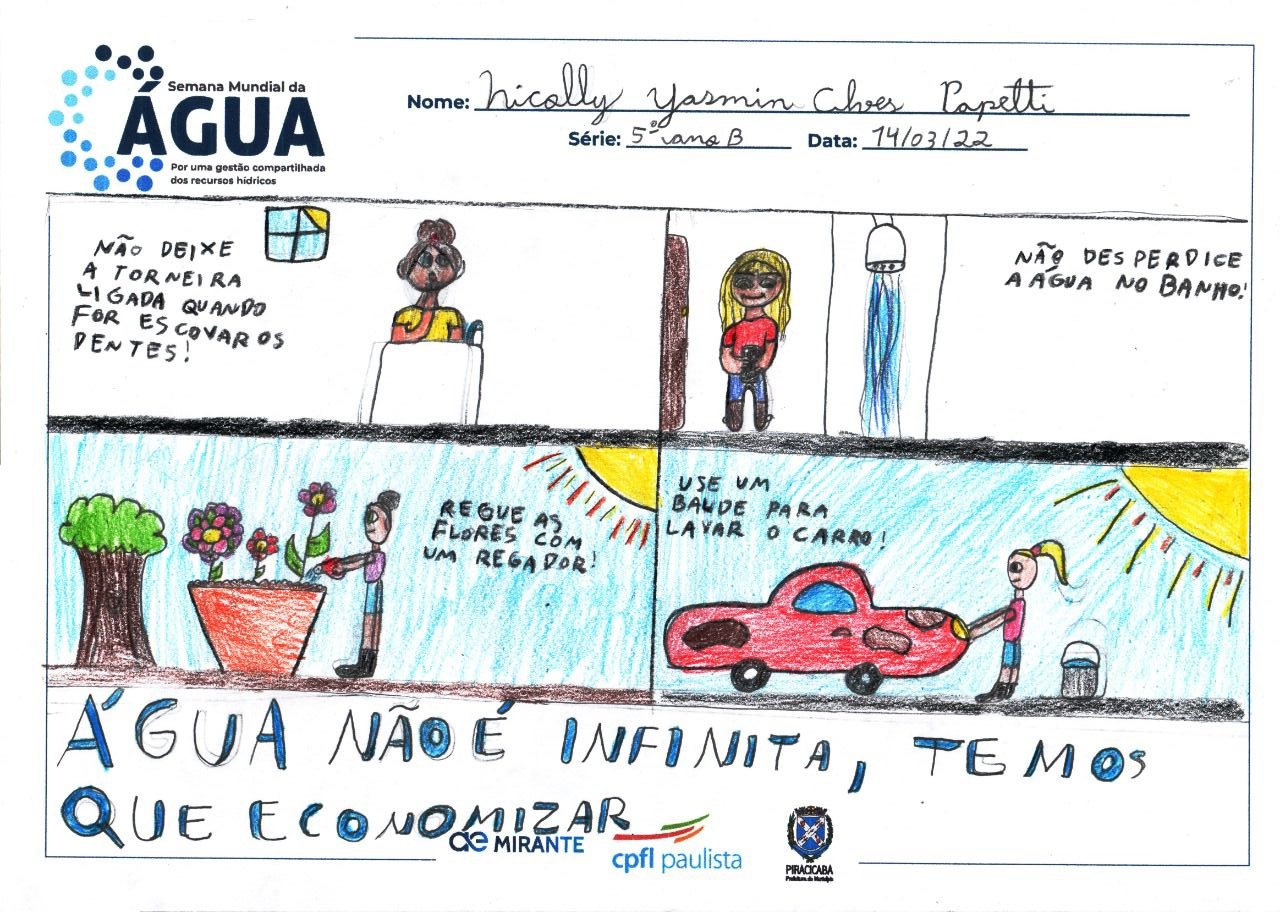 Semana Mundial da
ÁGUA
Por uma gestão compartilhada
dos recursos hídricos
Nome: Nicolly Yasmin Alves Papetti
Série: 5º ano B Data: 14/03/22
NÃO DEIXE
A TORNEIRA
LIGADA QUANDO
FOR ESCOVAR OS
DENTES!
NÃO DESPERDICE
A ÁGUA NO BANHO!
REGUE AS
FLORES COM
UM REGADOR!
USE UM
BALDE PARA
LAVAR O CARRO!
ÁGUA NÃO É INFINITA, TEMOS
QUE ECONOMIZAR
ae MIRANTE
cpfl paulista
PIRACICABA
Prefeitura do Município